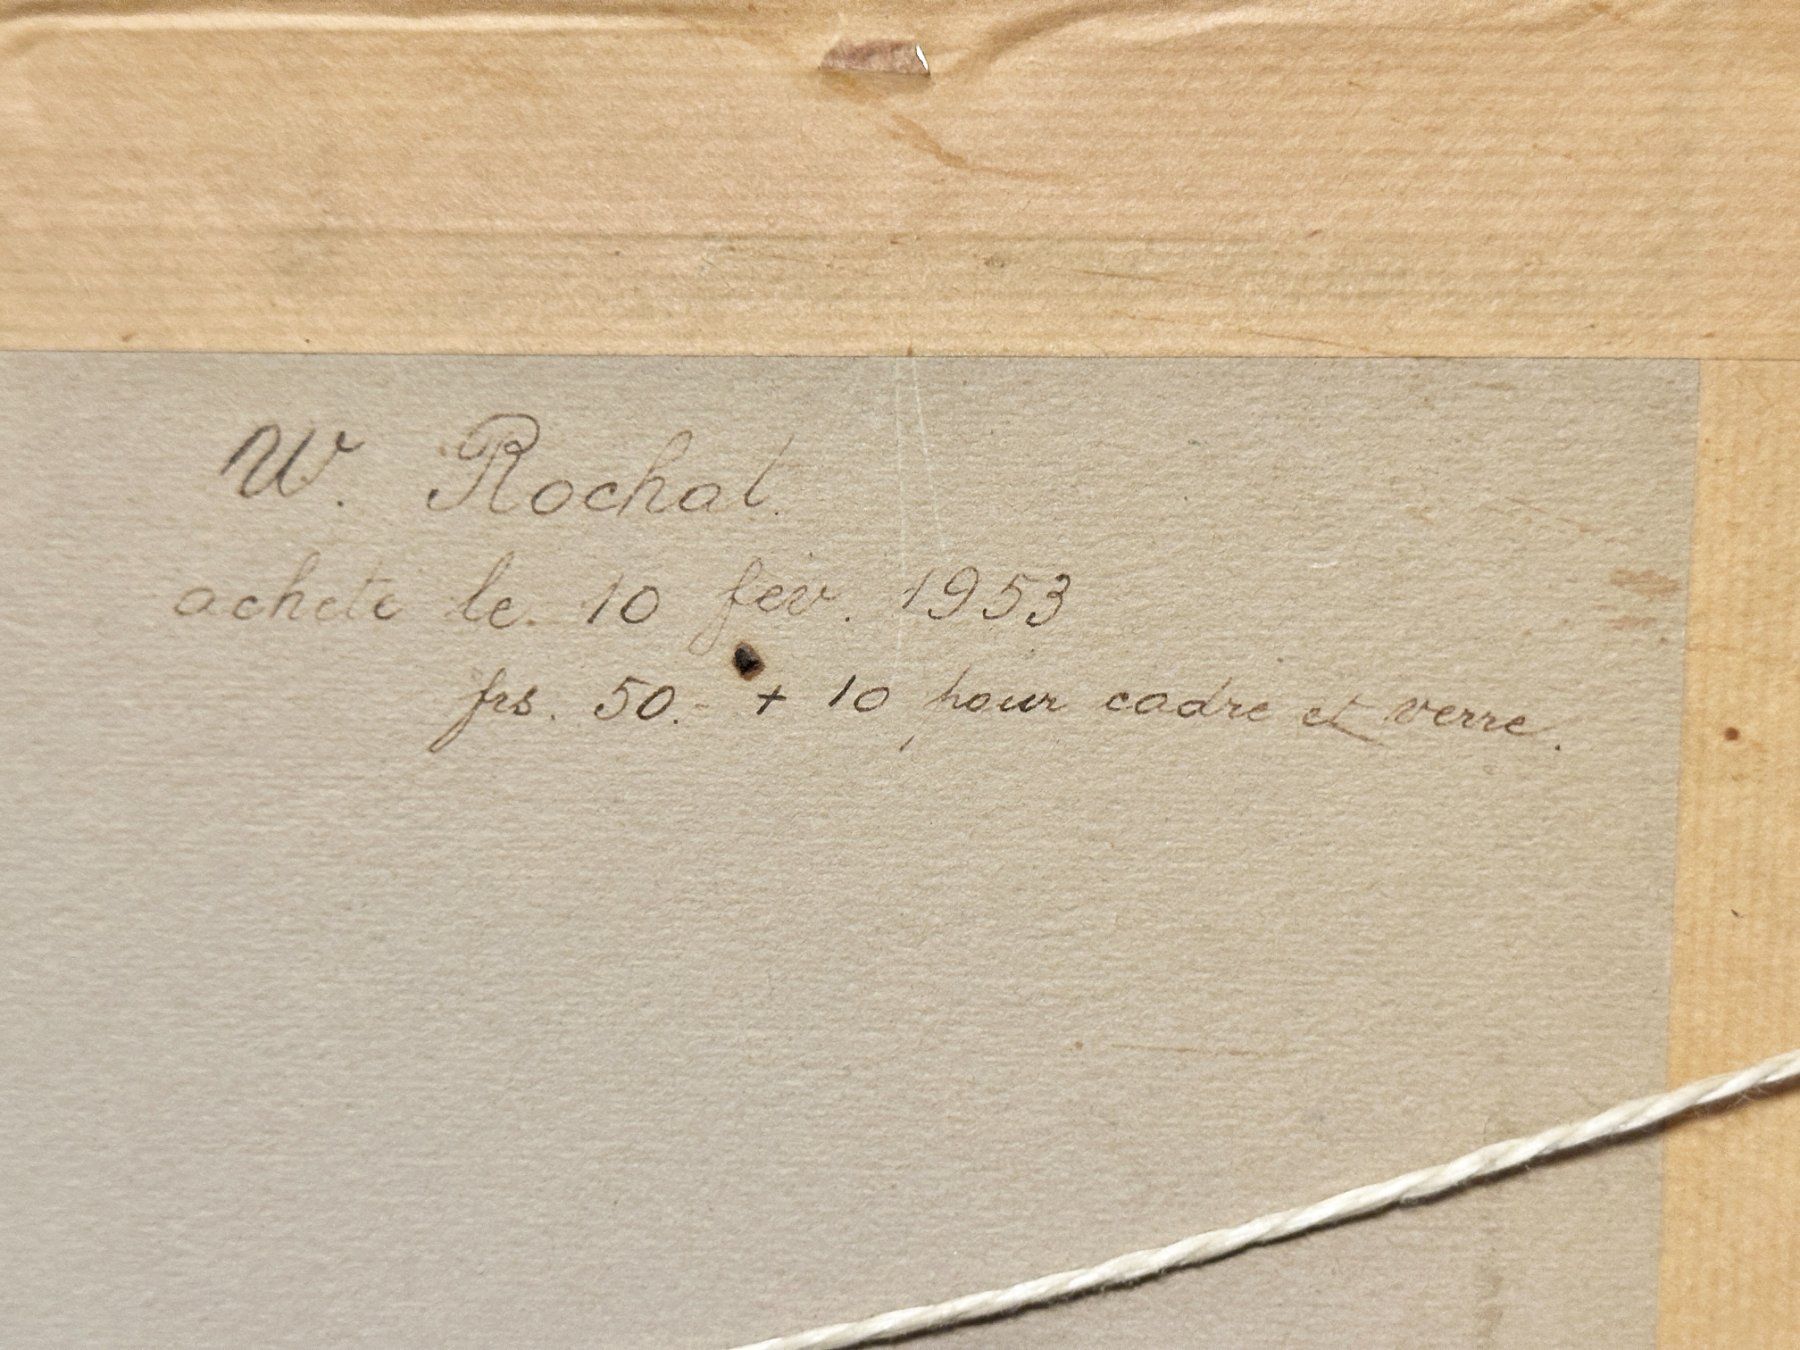 W. Rochat
acheté le 10 fév. 1953
frs. 50.- + 10 pour cadre et verre.